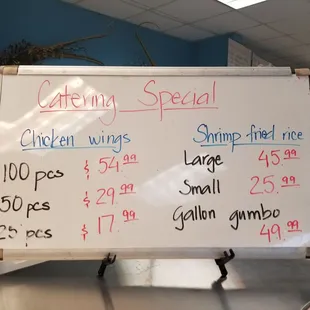 Catering Special
Chicken wings
100 pcs $54.99
50 pcs $29.99
25 pcs $17.99
Shrimp fried rice
Large 45.99
Small 25.99
Gallon gumbo
49.99